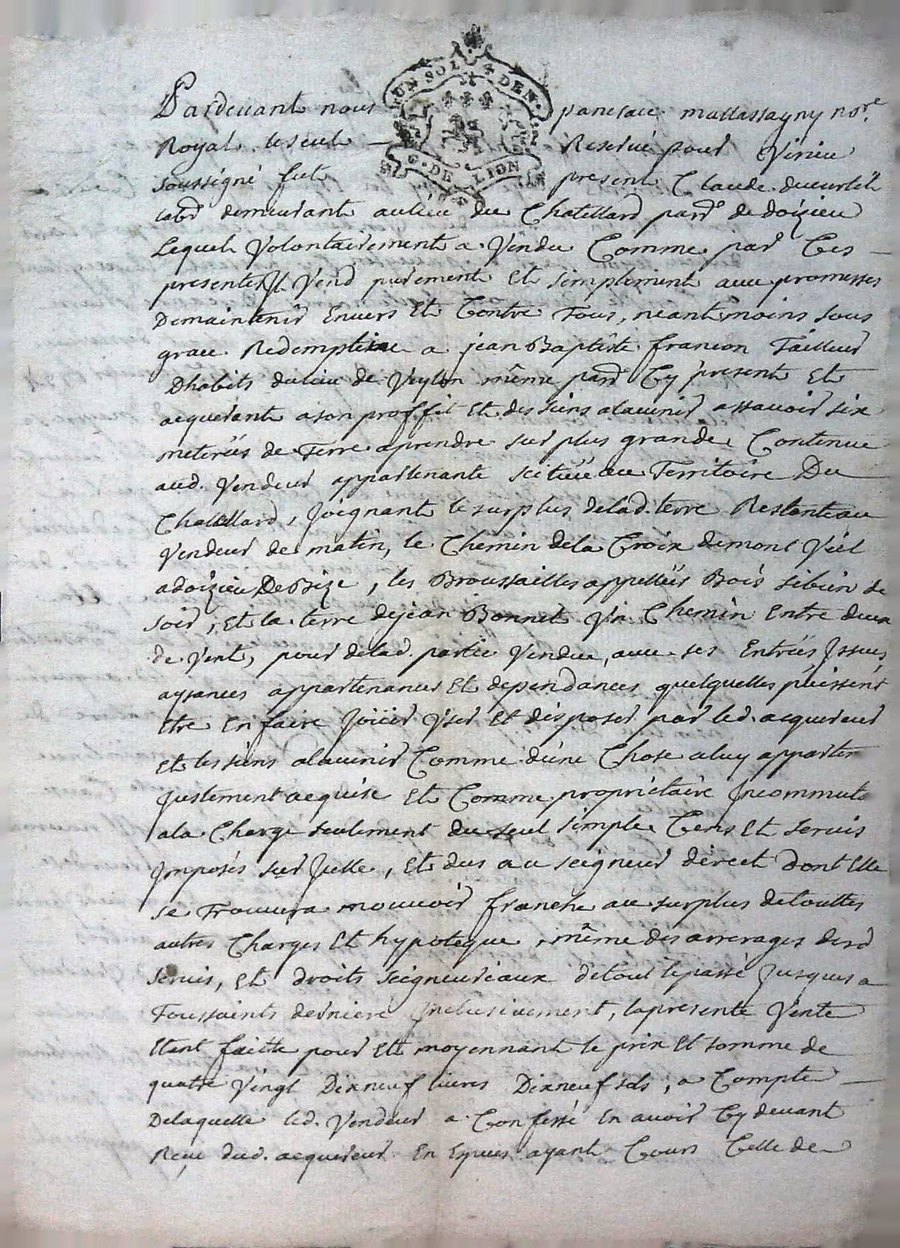 UN SOL 4 DEN.
G. DE LION
Pardevant nous pancrace mattassagny no.re
Royal le seul Reservé pour Virieu
soussigné fut present Claude
labr demeurant au lieu du Chatellard parse de doizieu
Lequel Volontairement a Vendu Comme par Ces
presentes Il Vend purement Et simplement avec promesses
De maintenir Envers Et Contre Tous, neantmoins sous
grace Redemptive a jean Baptiste francon Tailleur
Dhabits du lieu de Veylon même parse Cy present Et
acquerant a son proffit Et des siens alavenir assavoir six
meterées de Terre aprendre sur plus grande Contenue
aud. Vendeur appartenante scituée au Territoire Du
Chatellard, Joignant le surplus de lad. terre Restant au
Vendeur de matin, le Chemin de la Croix de mont Viel
a doizieu De Bize, les Broussailles appellées Bois de
soir, Et la terre de jean Bonnet Un Chemin Entre deux
de Vent, pour de lad. partie Vendue, avec ses Entrées Issues
aysances appartenances Et dependances quelquelles puissent
Etre En faire Joüir User Et disposer par led. acquereur
Et les siens alavenir Comme d'une Chose a luy apparten
Justement acquise Et Comme proprietaire Incommuta
ala Charge seulement du seul simple Cens Et servis
Imposés sur Icelle, Et dus au seigneur direct dont Elle
se Trouvera mouvoir franche au surplus de touttes
autres Charges Et hypoteque, même des arrerages desd
servis, Et droits seigneuriaux de tout le passé Jusques a
Toussaints derniere Inclusivement, la presente Vente
Etant faitte pour Et moyennant le prix Et somme de
quatre Vingt Dixneuf livres Dixneuf sols, a Compte
Delaquelle led. Vendeur a Confessé En avoir Cy devant
Reçu dud. acquereur En Especes ayant Cours Celle de